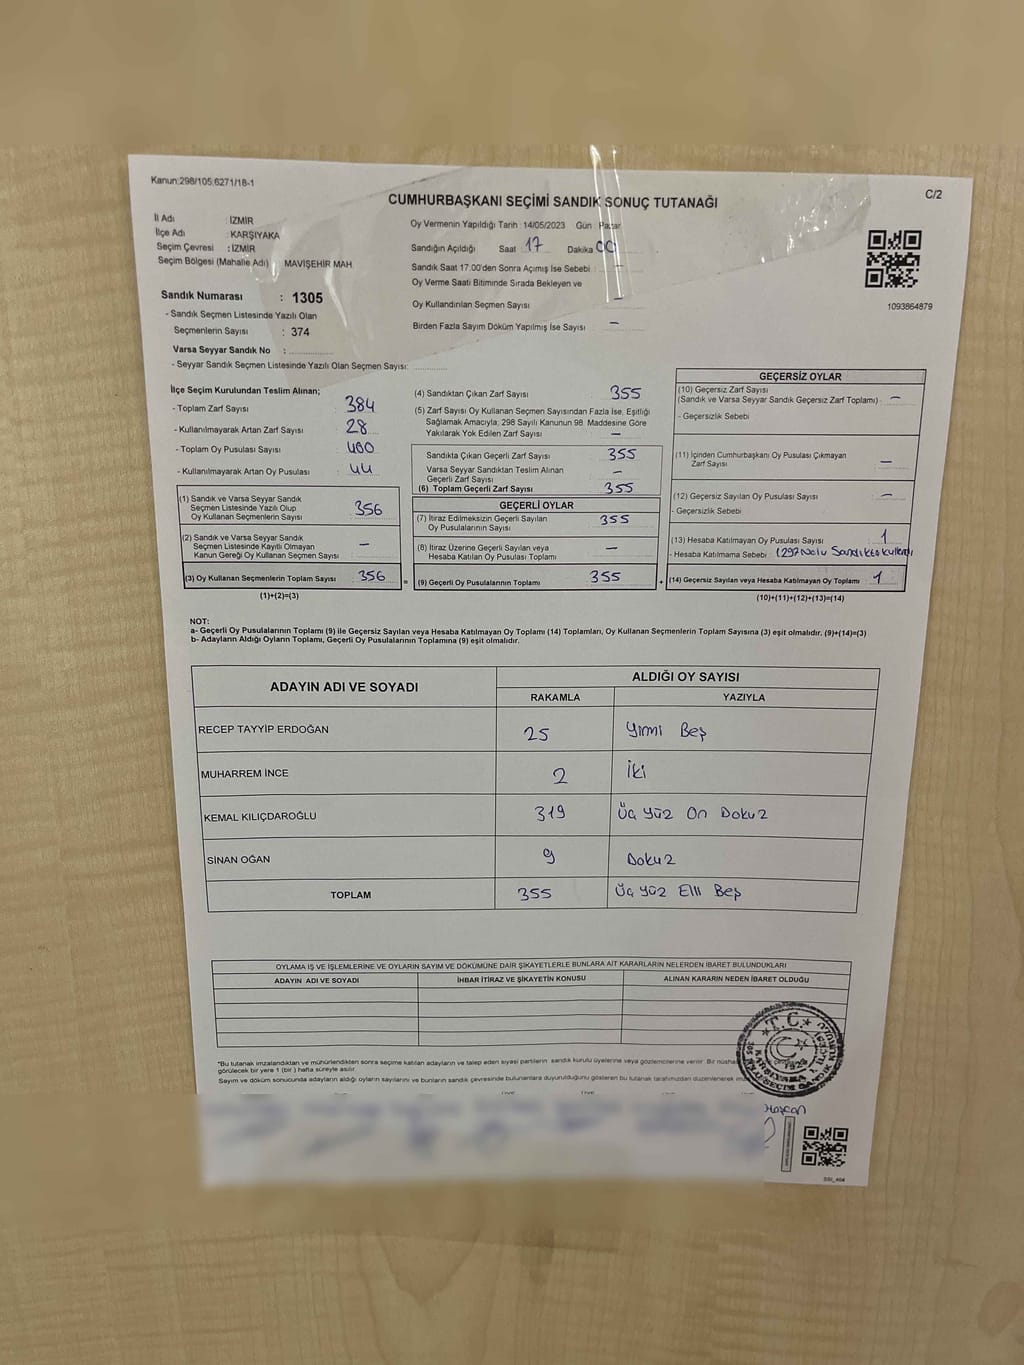 Kanun:298/105;6271/18-1
C/2
CUMHURBAŞKANI SEÇİMİ SANDIK SONUÇ TUTANAĞI
İl Adı : İZMİR
İlçe Adı : KARŞIYAKA
Seçim Çevresi : İZMİR
Seçim Bölgesi (Mahalle Adı) MAVİŞEHİR MAH
Sandık Numarası : 1305
- Sandık Seçmen Listesinde Yazılı Olan
Seçmenlerin Sayısı : 374
Varsa Seyyar Sandık No :
- Seyyar Sandık Seçmen Listesinde Yazılı Olan Seçmen Sayısı:
Oy Vermenin Yapıldığı Tarih 14/05/2023 Gün Pazar
Sandığın Açıldığı Saat 17 Dakika 00
Sandık Saat 17.00'den Sonra Açımış İse Sebebi : —
Oy Verme Saati Bitiminde Sırada Bekleyen ve
Oy Kullandırılan Seçmen Sayısı —
Birden Fazla Sayım Döküm Yapılmış İse Sayısı —
1093864879
İlçe Seçim Kurulundan Teslim Alınan;
- Toplam Zarf Sayısı : 384
- Kullanılmayarak Artan Zarf Sayısı : 28
- Toplam Oy Pusulası Sayısı : 400
- Kullanılmayarak Artan Oy Pusulası : 44
(1) Sandık ve Varsa Seyyar Sandık
Seçmen Listesinde Yazılı Olup
Oy Kullanan Seçmenlerin Sayısı 356
(2) Sandık ve Varsa Seyyar Sandık
Seçmen Listesinde Kayıtlı Olmayan
Kanun Gereği Oy Kullanan Seçmen Sayısı —
(3) Oy Kullanan Seçmenlerin Toplam Sayısı 356
(1)+(2)=(3)
(4) Sandıktan Çıkan Zarf Sayısı 355
(5) Zarf Sayısı Oy Kullanan Seçmen Sayısından Fazla İse, Eşitliği
Sağlamak Amacıyla; 298 Sayılı Kanunun 98. Maddesine Göre
Yakılarak Yok Edilen Zarf Sayısı —
Sandıkta Çıkan Geçerli Zarf Sayısı 355
Varsa Seyyar Sandıktan Teslim Alınan
Geçerli Zarf Sayısı —
(6) Toplam Geçerli Zarf Sayısı 355
GEÇERLİ OYLAR
(7) İtiraz Edilmeksizin Geçerli Sayılan
Oy Pusulalarının Sayısı 355
(8) İtiraz Üzerine Geçerli Sayılan veya
Hesaba Katılan Oy Pusulası Toplamı —
(9) Geçerli Oy Pusulalarının Toplamı 355
GEÇERSİZ OYLAR
(10) Geçersiz Zarf Sayısı
(Sandık ve Varsa Seyyar Sandık Geçersiz Zarf Toplamı) —
- Geçersizlik Sebebi
(11) İçinden Cumhurbaşkanı Oy Pusulası Çıkmayan
Zarf Sayısı —
(12) Geçersiz Sayılan Oy Pusulası Sayısı —
- Geçersizlik Sebebi
(13) Hesaba Katılmayan Oy Pusulası Sayısı 1
- Hesaba Katılmama Sebebi
(14) Geçersiz Sayılan veya Hesaba Katılmayan Oy Toplamı 1
(10)+(11)+(12)+(13)=(14)
NOT:
a- Geçerli Oy Pusulalarının Toplamı (9) ile Geçersiz Sayılan veya Hesaba Katılmayan Oy Toplamı (14) Toplamları, Oy Kullanan Seçmenlerin Toplam Sayısına (3) eşit olmalıdır. (9)+(14)=(3)
b- Adayların Aldığı Oyların Toplamı, Geçerli Oy Pusulalarının Toplamına (9) eşit olmalıdır.
ADAYIN ADI VE SOYADI ALDIĞI OY SAYISI
RAKAMLA YAZIYLA
RECEP TAYYİP ERDOĞAN 25 Yirmi Beş
MUHARREM İNCE 2 İki
KEMAL KILIÇDAROĞLU 319 Üç Yüz On Dokuz
SİNAN OĞAN 9 Dokuz
TOPLAM 355 Üç Yüz Elli Beş
OYLAMA İŞ VE İŞLEMLERİNE VE OYLARIN SAYIM VE DÖKÜMÜNE DAİR ŞİKAYETLERLE BUNLARA AİT KARARLARIN NELERDEN İBARET BULUNDUKLARI
ADAYIN ADI VE SOYADI İHBAR İTİRAZ VE ŞİKAYETİN KONUSU ALINAN KARARIN NEDEN İBARET OLDUĞU
*Bu tutanak imzalandıktan ve mühürlendikten sonra seçime katılan adayların ve talep eden siyasi partilerin sandık kurulu üyelerine veya gözlemcilerine verilir. Bir nüsha
görülecek bir yere 1 (bir) hafta süreyle asılır.
Sayım ve döküm sonucunda adayların aldığı oyların sayılarını ve bunların sandık çevresinde bulunanlara duyurulduğunu gösteren bu tutanak tarafımızdan düzenlenerek
T.C.